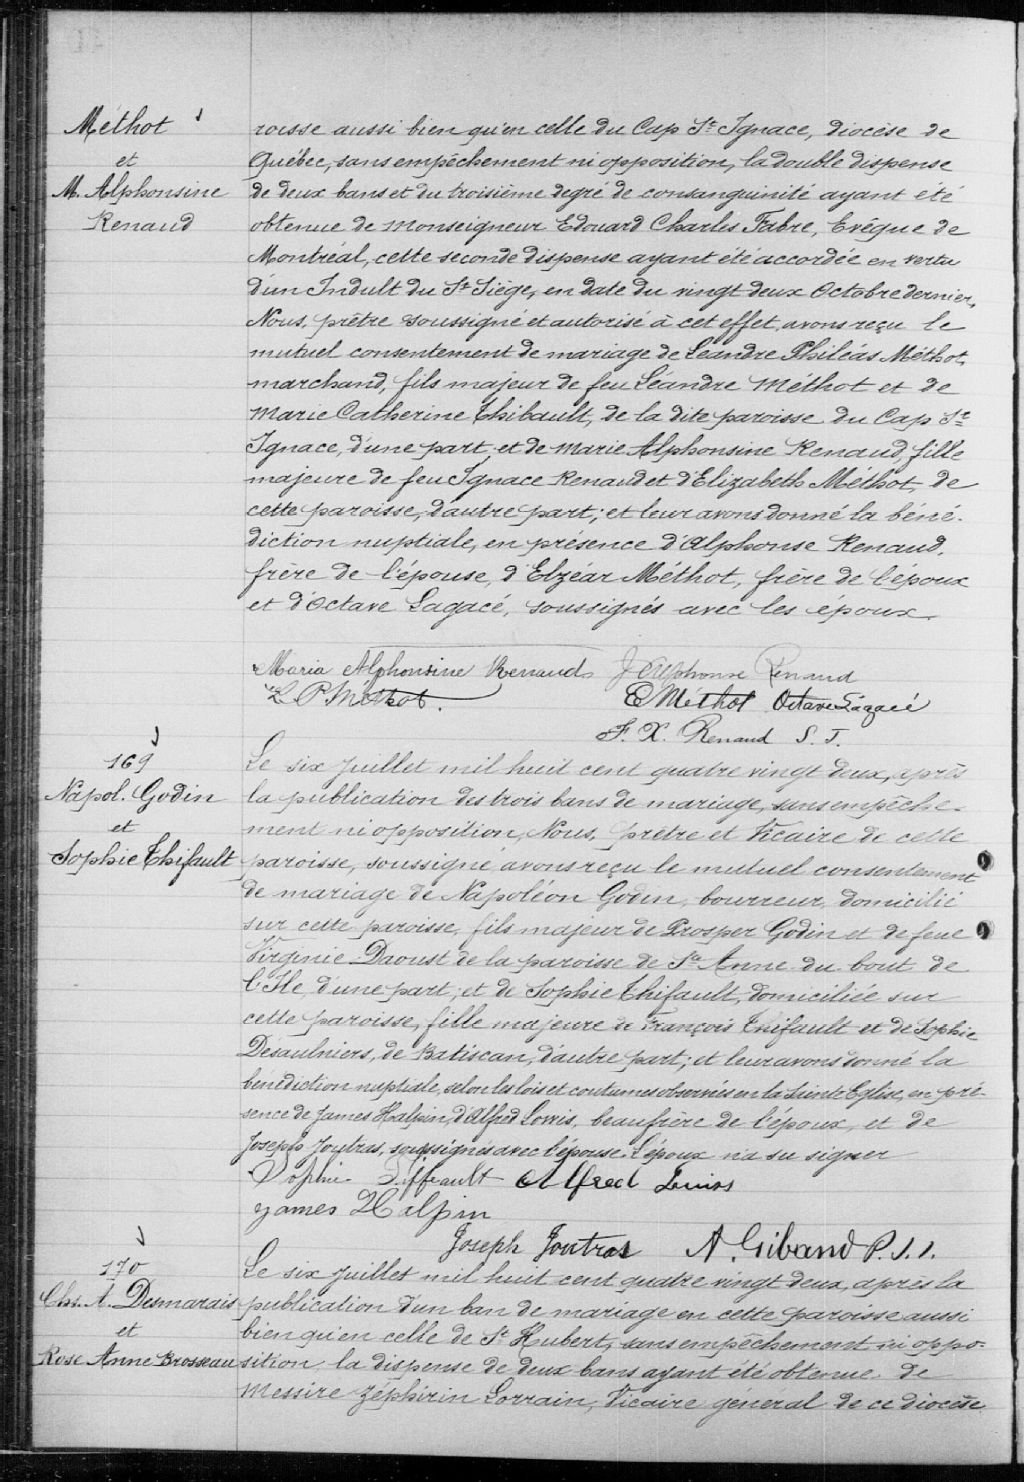 Méthot
et
M. Alphonsine
Renaud
roisse aussi bien qu'en celle du Cap St Ignace, diocèse de
Québec, sans empêchement ni opposition, la double dispense
de deux bans et du troisième degré de consanguinité ayant été
obtenue de Monseigneur Edouard Charles Fabre, Evêque de
Montréal, cette seconde dispense ayant été accordée en vertu
d'un Indult du St Siège, en date du vingt deux Octobre dernier,
Nous, prêtre soussigné et autorisé à cet effet, avons reçu le
mutuel consentement de mariage de Léandre Philéas Méthot,
marchand, fils majeur de feu Léandre Méthot et de
Marie Catherine Thibault, de la dite paroisse du Cap St
Ignace, d'une part, et de Marie Alphonsine Renaud, fille
majeure de feu Ignace Renaud et d'Elizabeth Méthot, de
cette paroisse, d'autre part; et leur avons donné la béné-
diction nuptiale, en présence d'Alphonse Renaud,
frère de l'épouse, d'Elzéar Méthot, frère de l'époux
et d'Octave Lagacé, soussignés avec les époux.
Maria Alphonsine Renaud J Alphonse Renaud
L. P. Méthot. E Méthot Octave Lagacé
F. X. Renaud S. J.
169
Napol. Godin
et
Sophie Thifault
Le six Juillet mil huit cent quatre vingt deux, après
la publication des trois bans de mariage, sans empêche-
ment ni opposition, Nous, prêtre et Vicaire de cette
paroisse, soussigné avons reçu le mutuel consentement
de mariage de Napoléon Godin, bourreur, domicilié
sur cette paroisse, fils majeur de Prosper Godin et de feue
Virginie Daoust de la paroisse de Ste Anne du bout de
l'Ile, d'une part; et de Sophie Thifault, domiciliée sur
cette paroisse, fille majeure de François Thifault et de Sophie
Désaulniers, de Batiscan, d'autre part; et leur avons donné la
bénédiction nuptiale, selon les lois et coutumes observées en la Sainte Eglise, en pré-
sence de James Halpin, d'Alfred beaufrère de l'époux, et de
Joseph Joutras, soussignés avec l'épouse. L'époux n'a su signer
Sophie Tiffeault Alfred
James Halpin
Joseph Joutras A. Giband P. S. S.
170
Chs. A. Desmarais
et
Rose Anne Brosseau
Le six Juillet mil huit cent quatre vingt deux, après la
publication d'un ban de mariage en cette paroisse aussi
bien qu'en celle de St Hubert, sans empêchement ni oppo-
sition, la dispense de deux bans ayant été obtenue de
Messire Zéphirin Lorrain, Vicaire général de ce diocèse